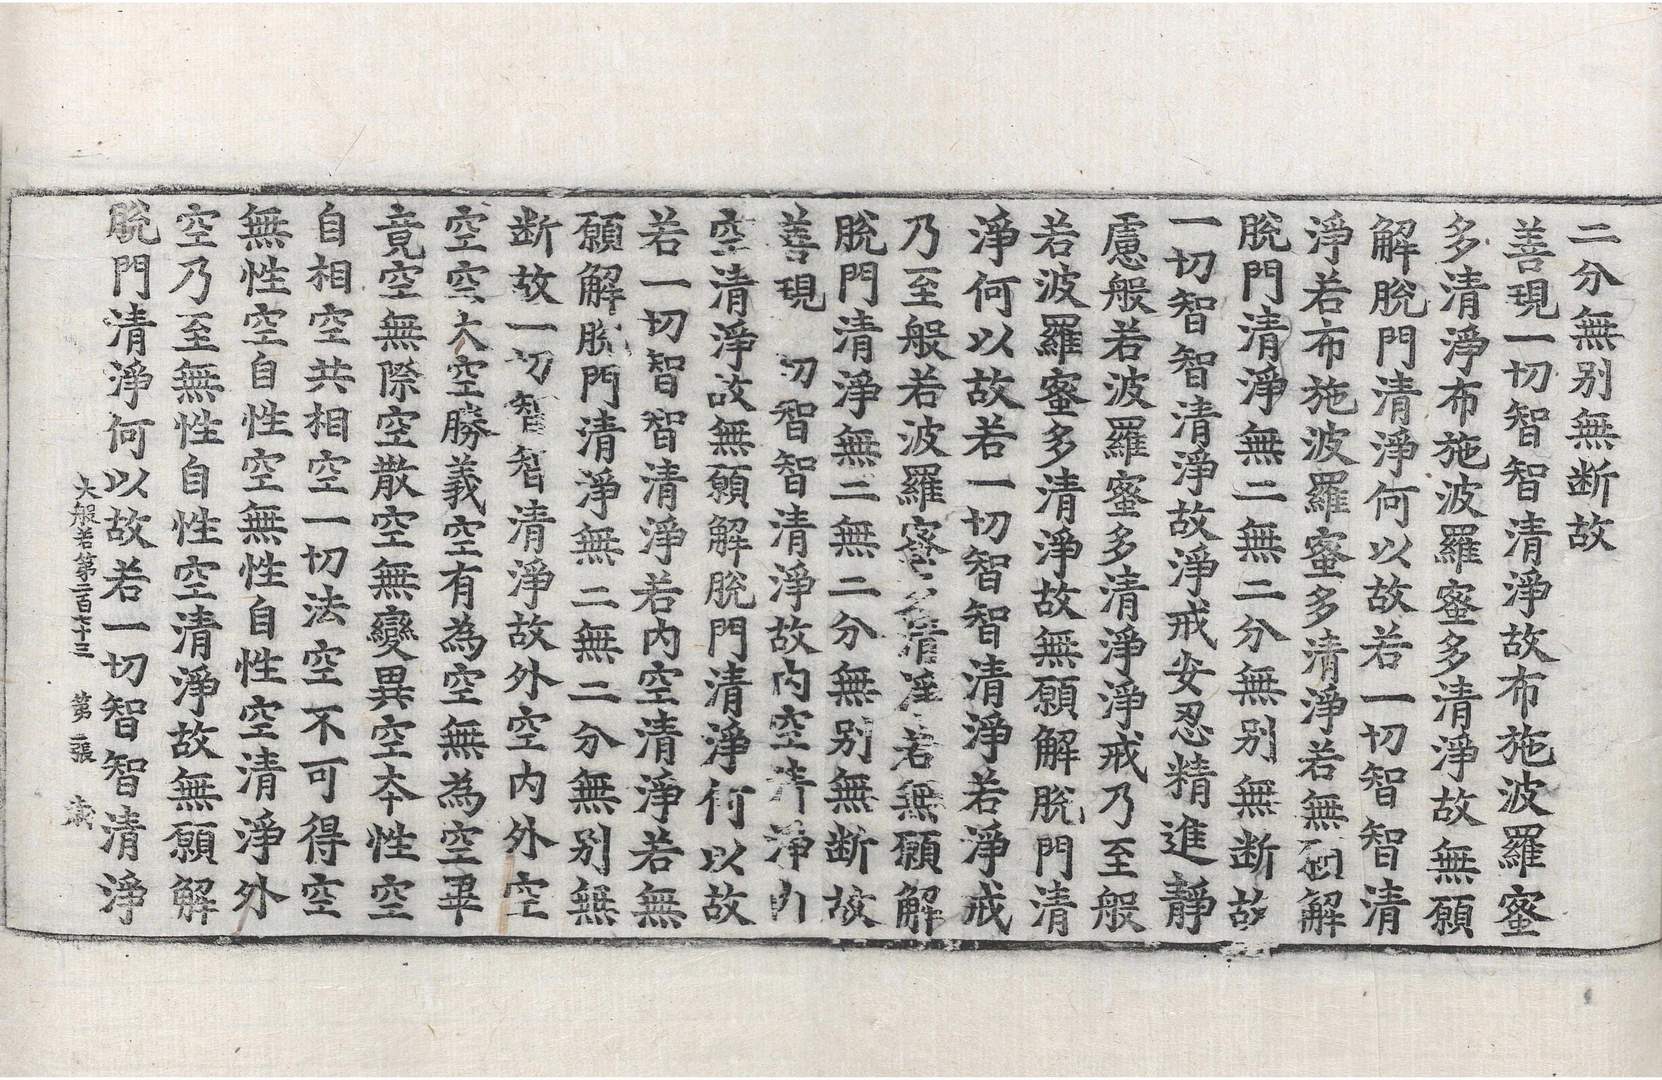 二分無別無断故
善現一切智智清淨故布施波羅蜜
多清淨布施波羅蜜多清淨故無願
解脫門清淨何以故若一切智智清
淨若布施波羅蜜多清淨若無願解
脫門清淨無二無二分無別無断故
一切智智清淨故淨戒安忍精進靜
慮般若波羅蜜多清淨淨戒乃至般
若波羅蜜多清淨故無願解脫門清
淨何以故若一切智智清淨若淨戒
乃至般若波羅蜜多清淨若無願解
脫門清淨無二無二分無別無断故
善現 切智智清淨故內空清淨內
空清淨故無願解脫門清淨何以故
若一切智智清淨若內空清淨若無
願解脫門清淨無二無二分無別無
断故一切智智清淨故外空內外空
空空大空勝義空有為空無為空畢
竟空無際空散空無變異空本性空
自相空共相空一切法空不可得空
無性空自性空無性自性空清淨外
空乃至無性自性空清淨故無願解
脫門清淨何以故若一切智智清淨
大般若第二百六十三 第二張